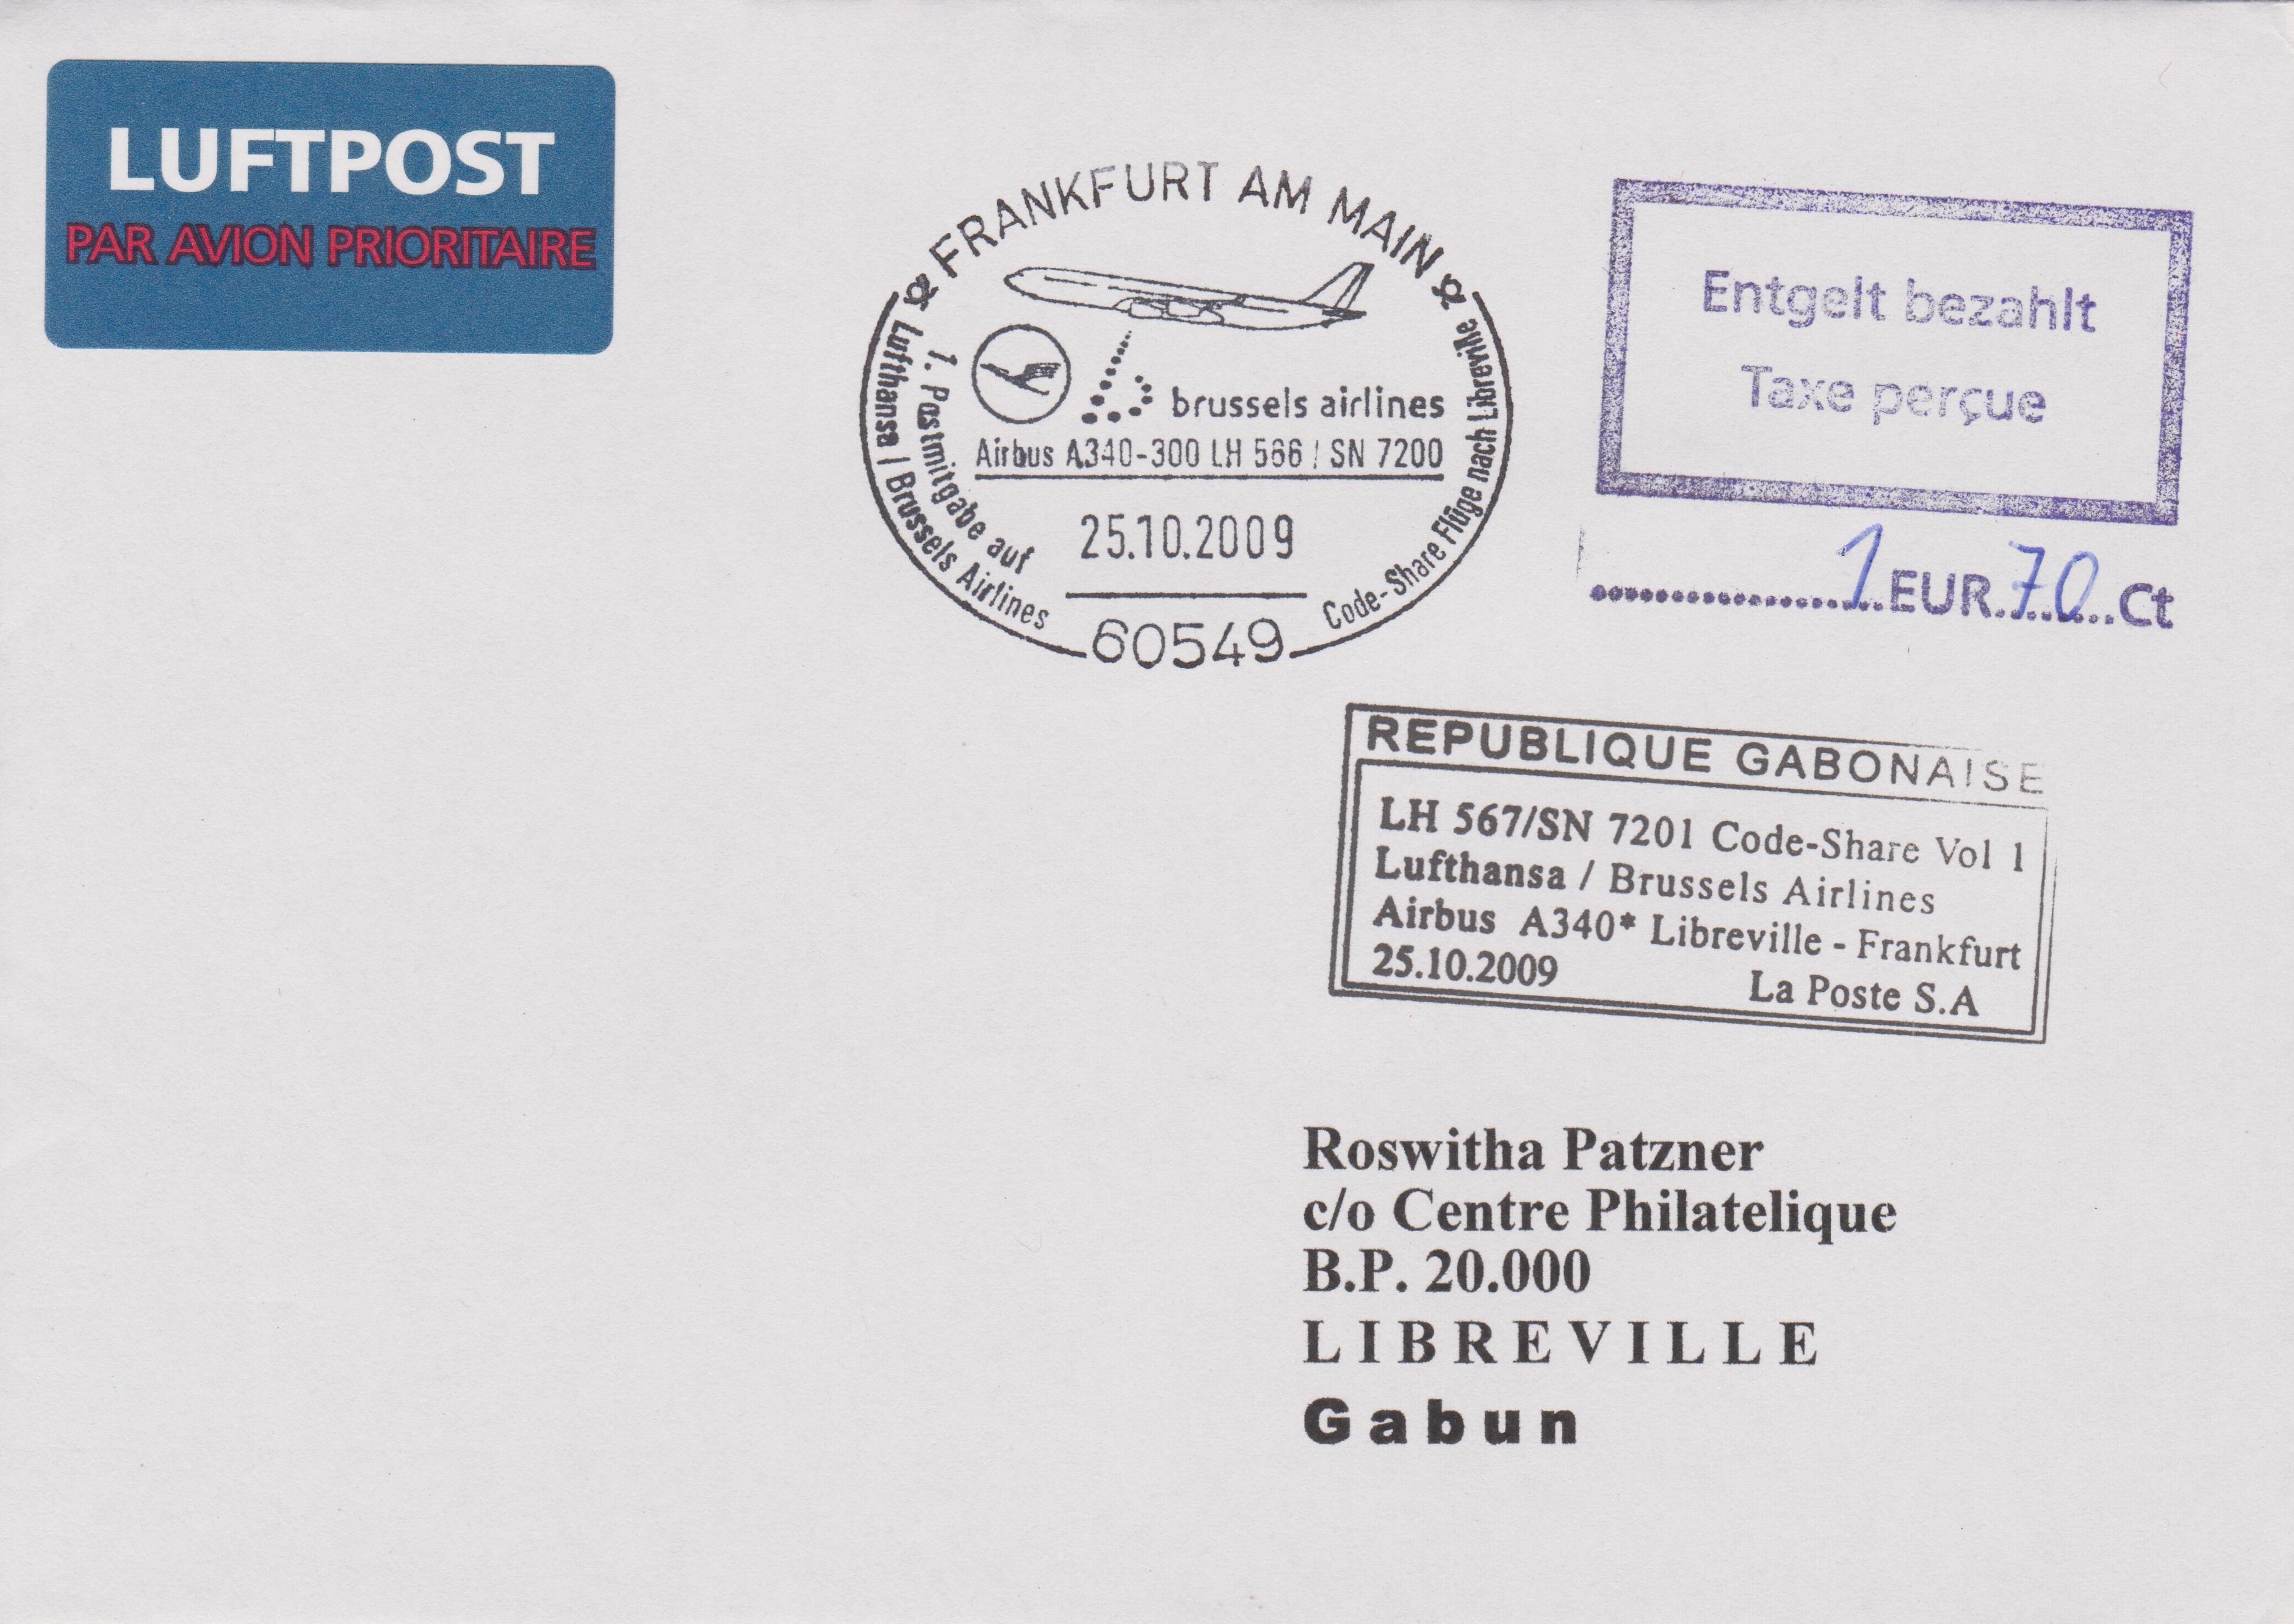 LUFTPOST
PAR AVION PRIORITAIRE
FRANKFURT AM MAIN
brussels airlines
Airbus A340-300 LH 566 / SN 7200
1. Postmitgabe auf
Lufthansa / Brussels Airlines
Code-Share Flüge nach Libreville
25.10.2009
60549
Entgelt bezahlt
Taxe perçue
1 EUR 70 Ct
REPUBLIQUE GABONAISE
LH 567/SN 7201 Code-Share Vol 1
Lufthansa / Brussels Airlines
Airbus A340* Libreville - Frankfurt
25.10.2009 La Poste S.A
Roswitha Patzner
c/o Centre Philatelique
B.P. 20.000
LIBREVILLE
Gabun